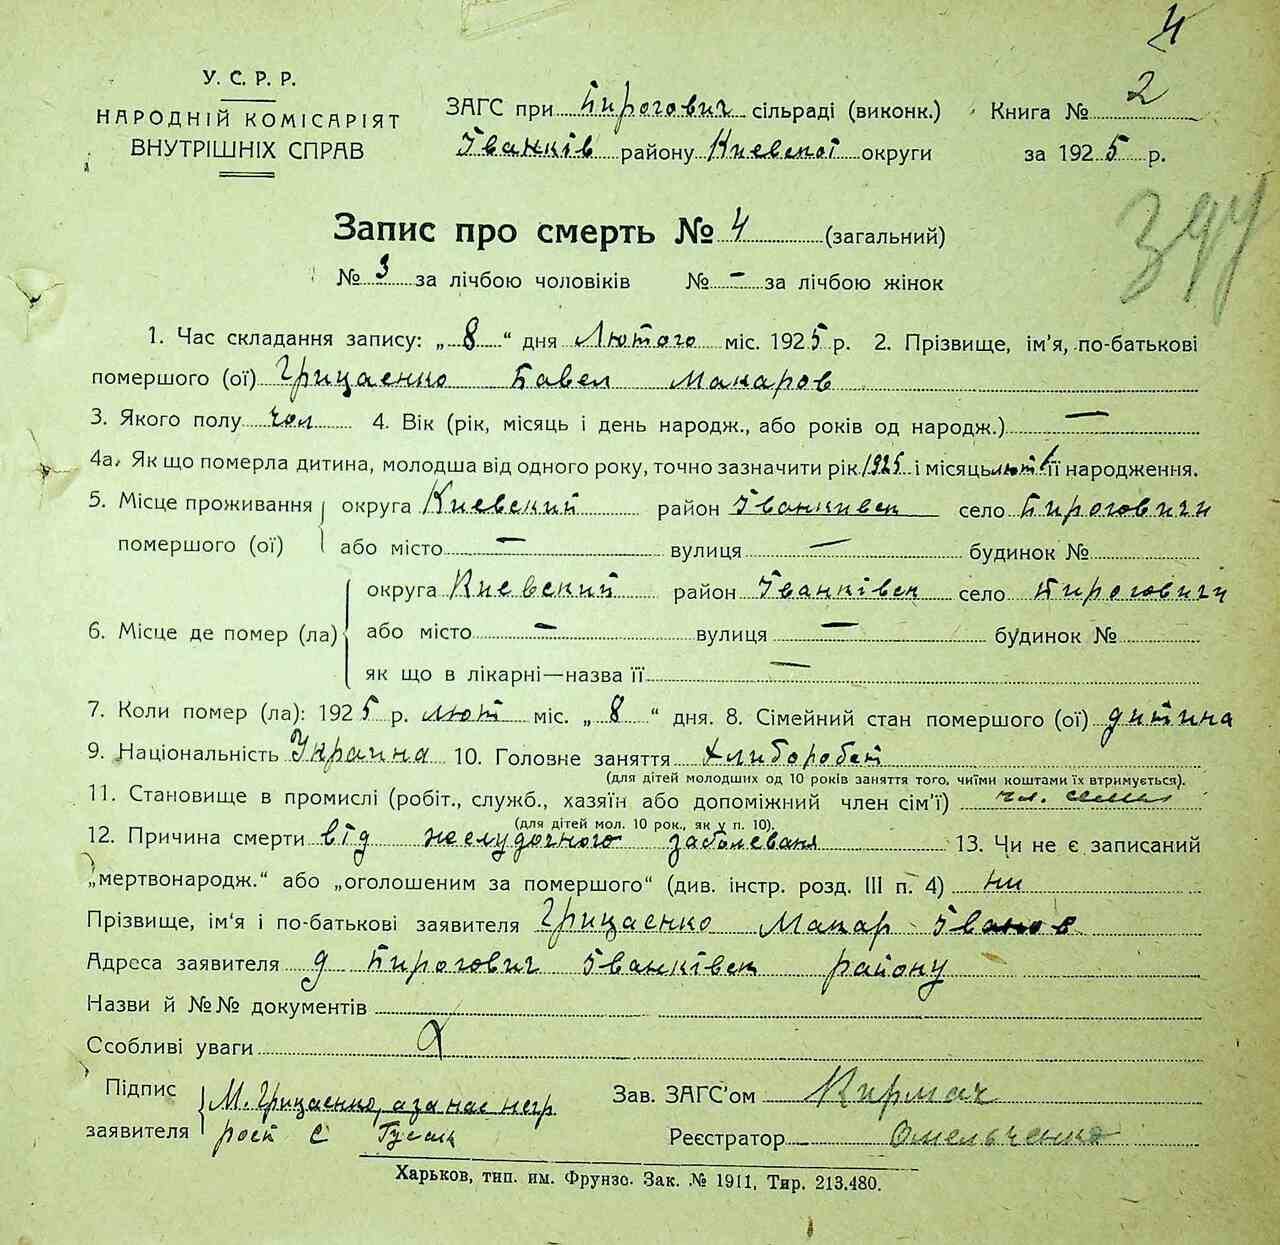 4
У. С. Р. Р.
НАРОДНІЙ КОМІСАРІЯТ
ВНУТРІШНІХ СПРАВ
ЗАГС при Пирогович сільраді (виконк.)
Іванків району Киевской округи
Книга № 2
за 1925 р.
Запис про смерть № 4 (загальний)
№ 3 за лічбою чоловіків № – за лічбою жінок
1. Час складання запису: „ 8 “ дня Лютого міс. 1925 р. 2. Прізвище, ім'я, по-батькові
помершого (ої) Грицаенко Павел Макаров
3. Якого полу чол 4. Вік (рік, місяць і день народж., або років од народж.) —
4а. Як що померла дитина, молодша від одного року, точно зазначити рік 1925 і місяць лют її народження.
5. Місце проживання помершого (ої) округа Киевский район Іванкивск село Пироговичи
або місто — вулиця — будинок №
6. Місце де помер (ла) округа Киевский район Іванківск село Пироговичи
або місто — вулиця — будинок №
як що в лікарні—назва її —
7. Коли помер (ла): 1925 р. лют міс. „ 8 “ дня. 8. Сімейний стан помершого (ої) дитина
9. Національність Украина 10. Головне заняття Хлиборобст
(для дітей молодших од 10 років заняття того, чиїми коштами їх втримується).
11. Становище в промислі (робіт., служб., хазяїн або допоміжний член сім'ї) чл. семи
(для дітей мол. 10 рок., як у п. 10).
12. Причина смерти від желудочного заболеваня 13. Чи не є записаний
„мертвонародж.“ або „оголошеним за помершого“ (див. інстр. розд. III п. 4) ни
Прізвище, ім'я і по-батькові заявителя Грицаенко Макар Іванов
Адреса заявителя д Пирогович Іванківск району
Назви й №№ документів
Ссобливі уваги
Підпис заявителя М. Грицаенко, а за нас негр
рост С Гусак
Зав. ЗАГС'ом Кирмач
Реєстратор Омельченко
Харьков, тип. им. Фрунзе. Зак. № 1911, Тир. 213.480.